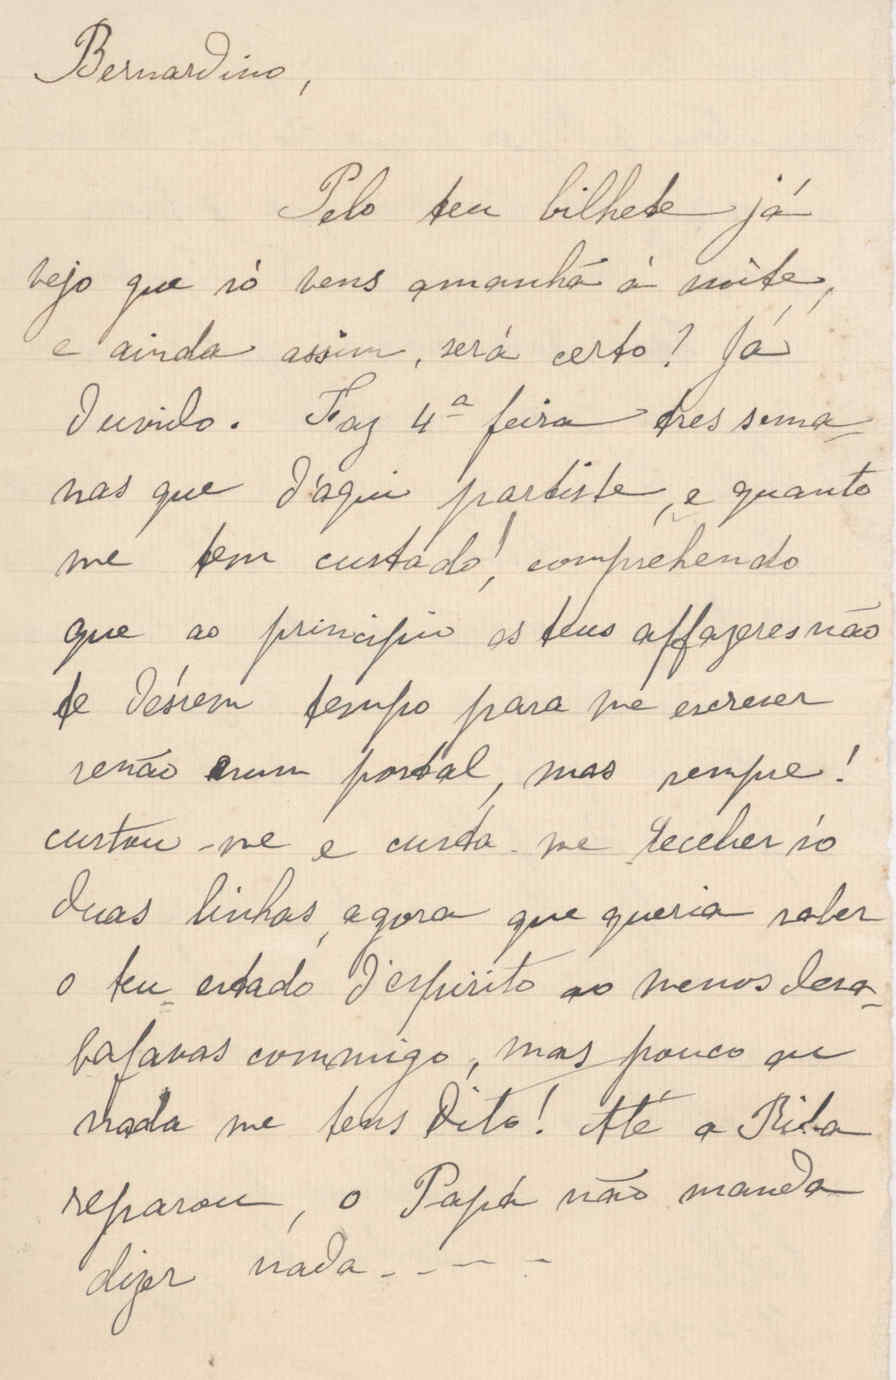 Bernardino,
Pelo teu bilhete já
vejo que só vens amanhã á noite,
e ainda assim, será certo? Já
duvido. Faz 4ª feira tres sema=
nas que d'aqui partiste, e quanto
me tem custado!, comprehendo
que ao principio os teus affazeres não
te déssem tempo para me escrever
senão num postal, mas sempre!
custou-me e custa-me receber só
duas linhas, agora que queria saber
o teu estado d'espirito ao menos desa=
bafavas commigo, mas pouco ou
nada me tens dito! Até a Rita
reparou, o Papá não manda
dizer nada - - - -